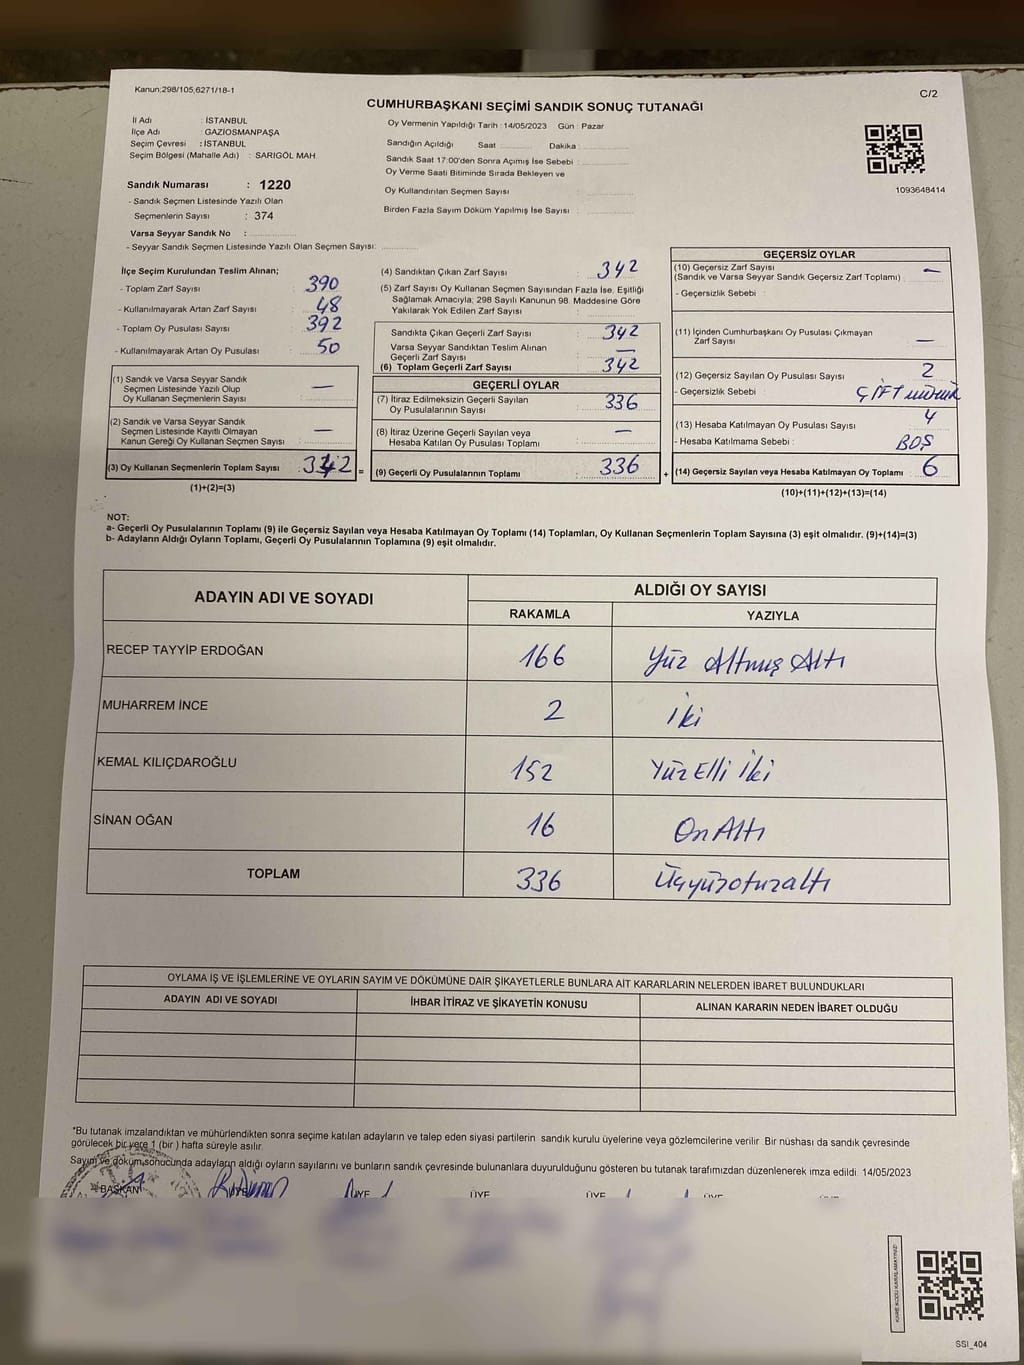 Kanun;298/105,6271/18-1
C/2
CUMHURBAŞKANI SEÇİMİ SANDIK SONUÇ TUTANAĞI
İl Adı : İSTANBUL
İlçe Adı : GAZİOSMANPAŞA
Seçim Çevresi : İSTANBUL
Seçim Bölgesi (Mahalle Adı) : SARIGÖL MAH.
Sandık Numarası : 1220
- Sandık Seçmen Listesinde Yazılı Olan
Seçmenlerin Sayısı : 374
Varsa Seyyar Sandık No :
- Seyyar Sandık Seçmen Listesinde Yazılı Olan Seçmen Sayısı:
Oy Vermenin Yapıldığı Tarih : 14/05/2023 Gün : Pazar
Sandığın Açıldığı Saat Dakika
Sandık Saat 17:00'den Sonra Açımış İse Sebebi :
Oy Verme Saati Bitiminde Sırada Bekleyen ve
Oy Kullandırılan Seçmen Sayısı :
Birden Fazla Sayım Döküm Yapılmış İse Sayısı :
1093648414
İlçe Seçim Kurulundan Teslim Alınan;
- Toplam Zarf Sayısı : 390
- Kullanılmayarak Artan Zarf Sayısı : 48
- Toplam Oy Pusulası Sayısı : 392
- Kullanılmayarak Artan Oy Pusulası : 50
(1) Sandık ve Varsa Seyyar Sandık
Seçmen Listesinde Yazılı Olup
Oy Kullanan Seçmenlerin Sayısı : —
(2) Sandık ve Varsa Seyyar Sandık
Seçmen Listesinde Kayıtlı Olmayan
Kanun Gereği Oy Kullanan Seçmen Sayısı : —
(3) Oy Kullanan Seçmenlerin Toplam Sayısı 342 =
(1)+(2)=(3)
(4) Sandıktan Çıkan Zarf Sayısı : 342
(5) Zarf Sayısı Oy Kullanan Seçmen Sayısından Fazla İse, Eşitliği
Sağlamak Amacıyla; 298 Sayılı Kanunun 98. Maddesine Göre
Yakılarak Yok Edilen Zarf Sayısı :
Sandıkta Çıkan Geçerli Zarf Sayısı : 342
Varsa Seyyar Sandıktan Teslim Alınan
Geçerli Zarf Sayısı : —
(6) Toplam Geçerli Zarf Sayısı : 342
GEÇERLİ OYLAR
(7) İtiraz Edilmeksizin Geçerli Sayılan
Oy Pusulalarının Sayısı : 336
(8) İtiraz Üzerine Geçerli Sayılan veya
Hesaba Katılan Oy Pusulası Toplamı : —
(9) Geçerli Oy Pusulalarının Toplamı : 336 +
GEÇERSİZ OYLAR
(10) Geçersiz Zarf Sayısı —
(Sandık ve Varsa Seyyar Sandık Geçersiz Zarf Toplamı) :
- Geçersizlik Sebebi :
(11) İçinden Cumhurbaşkanı Oy Pusulası Çıkmayan
Zarf Sayısı : —
(12) Geçersiz Sayılan Oy Pusulası Sayısı : 2
- Geçersizlik Sebebi : ÇİFT
(13) Hesaba Katılmayan Oy Pusulası Sayısı : 4
- Hesaba Katılmama Sebebi : BOŞ
(14) Geçersiz Sayılan veya Hesaba Katılmayan Oy Toplamı : 6
(10)+(11)+(12)+(13)=(14)
NOT:
a- Geçerli Oy Pusulalarının Toplamı (9) ile Geçersiz Sayılan veya Hesaba Katılmayan Oy Toplamı (14) Toplamları, Oy Kullanan Seçmenlerin Toplam Sayısına (3) eşit olmalıdır. (9)+(14)=(3)
b- Adayların Aldığı Oyların Toplamı, Geçerli Oy Pusulalarının Toplamına (9) eşit olmalıdır.
ADAYIN ADI VE SOYADI ALDIĞI OY SAYISI
RAKAMLA YAZIYLA
RECEP TAYYİP ERDOĞAN 166 Yüz Altmış Altı
MUHARREM İNCE 2 İki
KEMAL KILIÇDAROĞLU 152 Yüz Elli İki
SİNAN OĞAN 16 On Altı
TOPLAM 336 Üçyüzotuzaltı
OYLAMA İŞ VE İŞLEMLERİNE VE OYLARIN SAYIM VE DÖKÜMÜNE DAİR ŞİKAYETLERLE BUNLARA AİT KARARLARIN NELERDEN İBARET BULUNDUKLARI
ADAYIN ADI VE SOYADI İHBAR İTİRAZ VE ŞİKAYETİN KONUSU ALINAN KARARIN NEDEN İBARET OLDUĞU
*Bu tutanak imzalandıktan ve mühürlendikten sonra seçime katılan adayların ve talep eden siyasi partilerin sandık kurulu üyelerine veya gözlemcilerine verilir. Bir nüshası da sandık çevresinde
görülecek bir yere 1 (bir ) hafta süreyle asılır.
Sayım ve döküm sonucunda adayların aldığı oyların sayılarını ve bunların sandık çevresinde bulunanlara duyurulduğunu gösteren bu tutanak tarafımızdan düzenlenerek imza edildi. 14/05/2023
BAŞKAN ÜYE ÜYE ÜYE ÜYE ÜYE
SSI_404